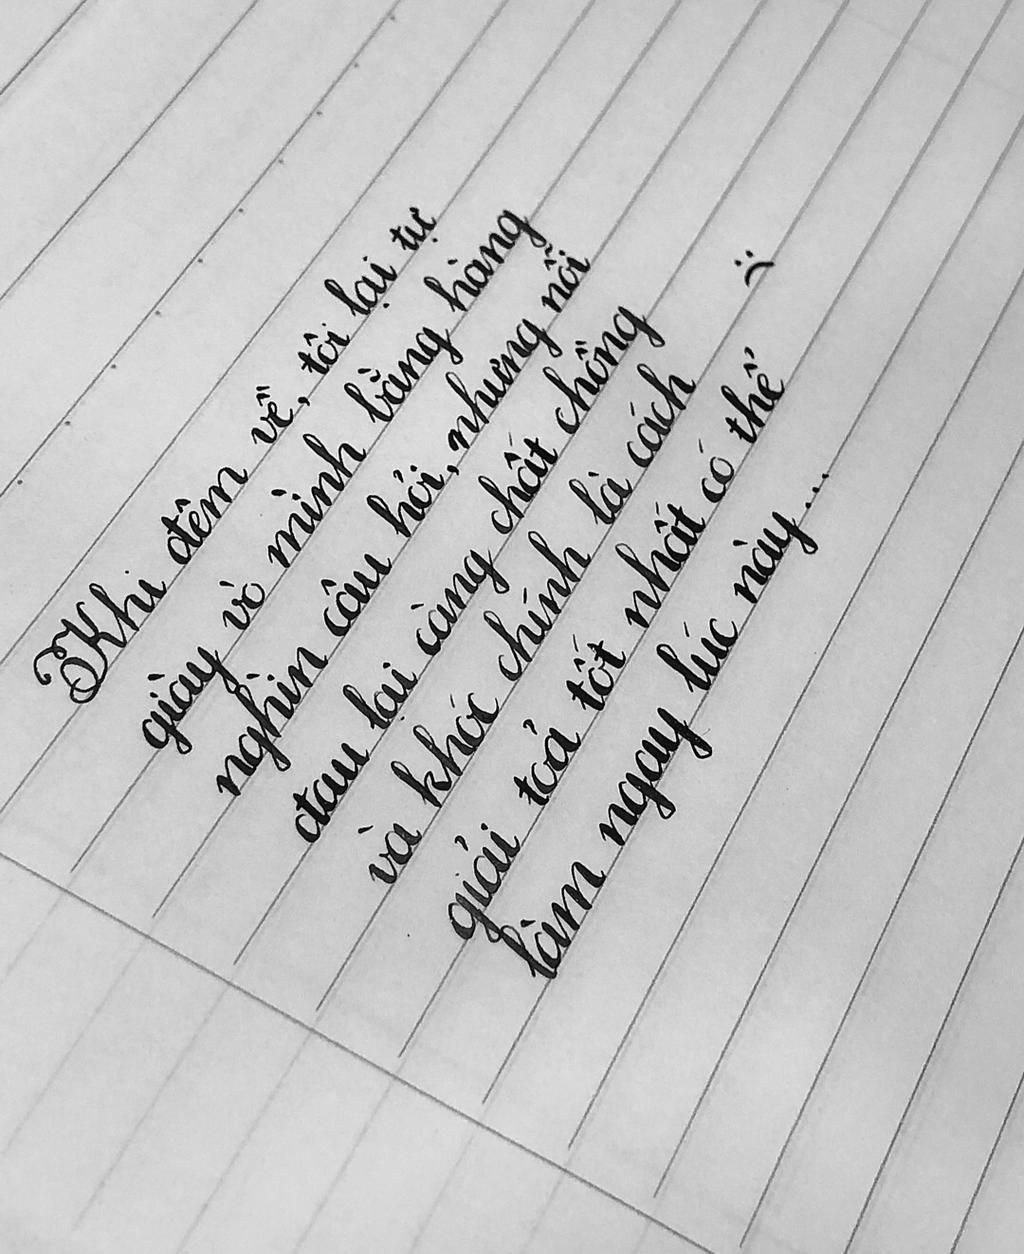 Khi đêm về, tôi lại tự
giày vò mình bằng hàng
nghìn câu hỏi, nhưng nỗi
đau lại càng chất chồng
và khóc chính là cách
giải toả tốt nhất có thể
làm ngay lúc này... :(